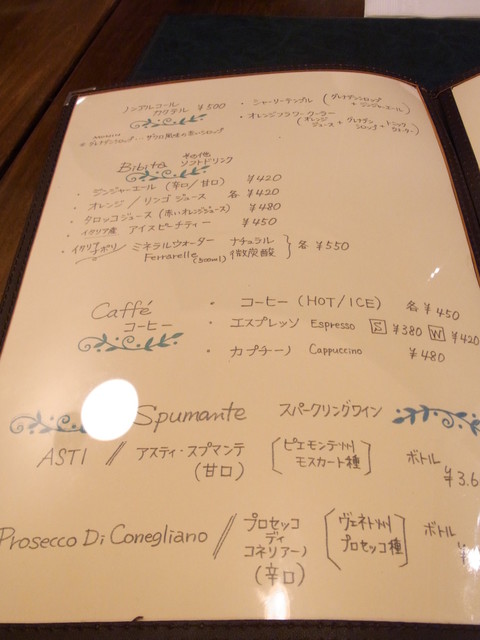 ノンアルコール
カクテル ¥500
・シャーリーテンプル (グレナデンシロップ
+
ジンジャーエール)
・オレンジフラワークーラー
(オレンジ
ジュース + グレナデン
シロップ + トニック
ウォーター)
※グレナデンシロップ… ザクロ風味の赤いシロップ
Bibita その他
ソフトドリンク
・ジンジャーエール (辛口/甘口) ¥420
・オレンジ/リンゴジュース 各¥420
・タロッコジュース (赤いオレンジジュース) ¥480
・イタリア産 アイスピーチティー ¥450
・イタリア ナポリ ミネラルウォーター ナチュラル
Ferrarelle (500ml) 微炭酸 } 各¥550
Caffé
コーヒー
・コーヒー (HOT/ICE) 各¥450
・エスプレッソ Espresso S ¥380 W ¥420
・カプチーノ Cappuccino ¥480
Spumante スパークリングワイン
ASTI // アスティ・スプマンテ
(甘口)
[ピエモンテ州
モスカート種]
ボトル
¥3.6
Prosecco Di Conegliano // プロセッコ
ディ
コネリアーノ
(辛口)
[ヴェネト州
プロセッコ種]
ボトル
¥